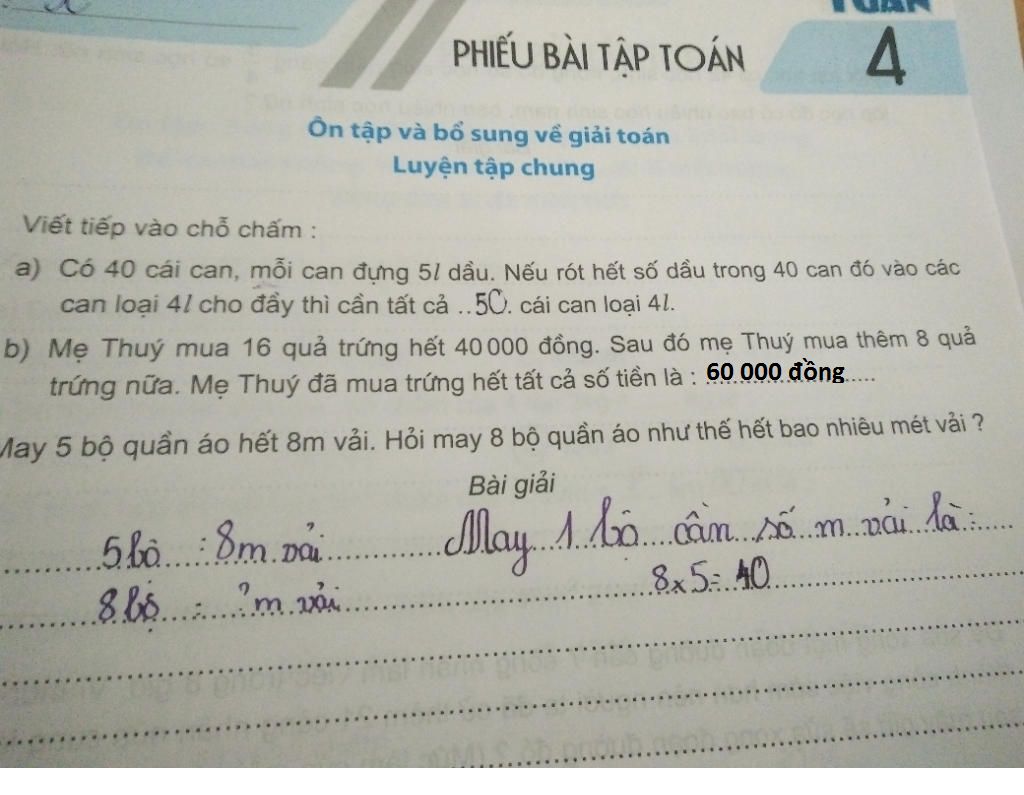 TUẦN
PHIẾU BÀI TẬP TOÁN 4
Ôn tập và bổ sung về giải toán
Luyện tập chung
Viết tiếp vào chỗ chấm :
a) Có 40 cái can, mỗi can đựng 5l dầu. Nếu rót hết số dầu trong 40 can đó vào các
can loại 4l cho đầy thì cần tất cả ..50. cái can loại 4l.
b) Mẹ Thuý mua 16 quả trứng hết 40 000 đồng. Sau đó mẹ Thuý mua thêm 8 quả
trứng nữa. Mẹ Thuý đã mua trứng hết tất cả số tiền là : 60 000 đồng.....
May 5 bộ quần áo hết 8m vải. Hỏi may 8 bộ quần áo như thế hết bao nhiêu mét vải ?
Bài giải
5 bộ : 8m vải May 1 bộ cần số m vải là :
8 bộ : ?m vải 8 x 5 = 40